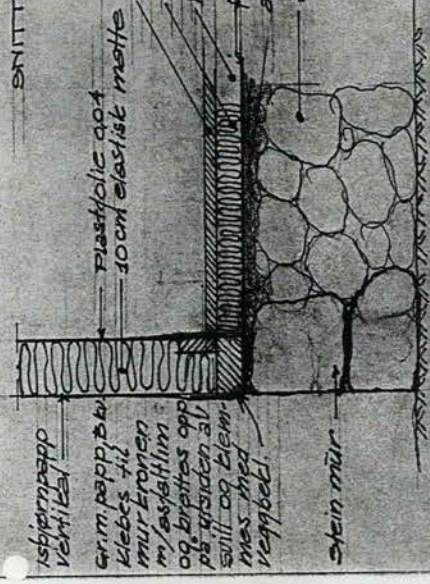 SNITT
Plastfolie 0,04
10 cm elastisk matte
isbjørnpapp
vertikal
Gr.m. papp, 3 kv.
klebes til
murkronen
m/asfaltlim
og brettes opp
på utsiden av
svill og klem-
mes med
veggbekl.
Stein mur